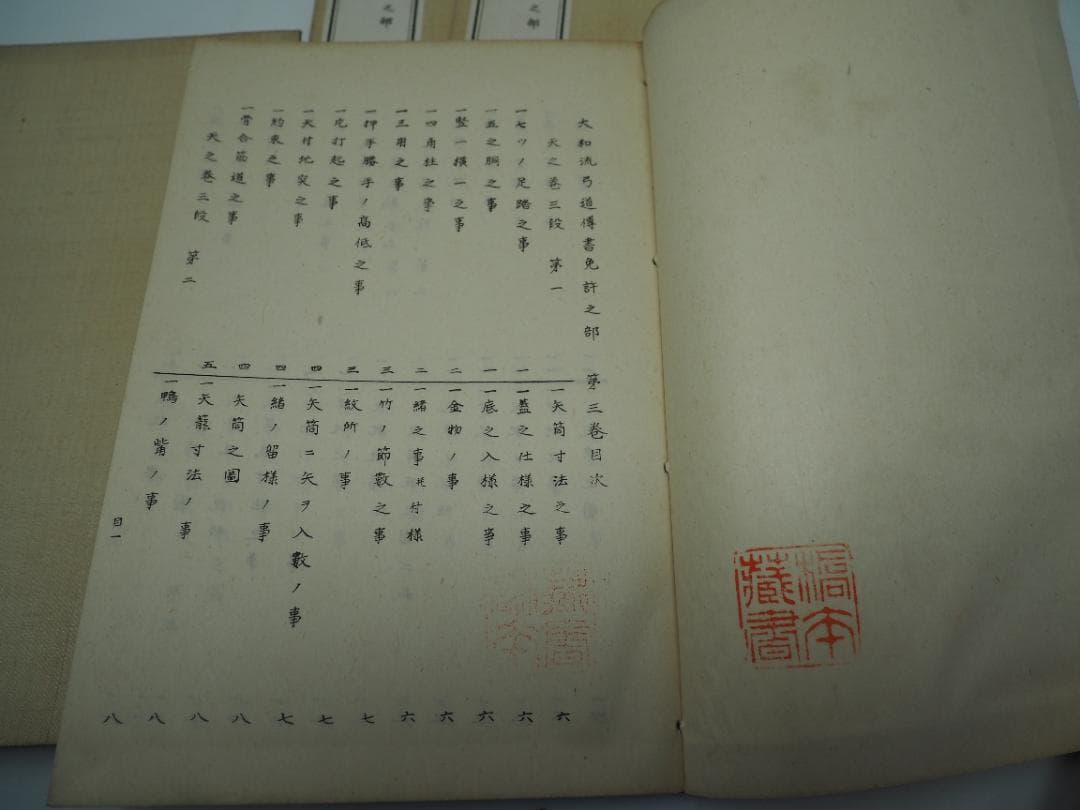 大和流弓道傳書免許之部　第三巻目次
天之巻三段　第一
一七ツノ足踏之事　一
一五之胴之事　一
一竪一横一之事　二
一四角柱之事　二
一三用之事　三
一押手勝手ノ高低之事　三
打起之事　四
一天付地突之事　四
一約束之事　四
一骨合筋道之事　五
天之巻三段　第二
一矢筒寸法之事　六
一蓋之仕様之事　六
一底之入様之事　六
一金物ノ事　六
一緒之事 付様　六
一竹ノ節數之事　七
一紋所ノ事　七
一矢筒ニ矢ヲ入數ノ事　七
一緒ノ留様ノ事　八
矢筒之圖　八
一矢籠寸法ノ事　八
一鴨ノ觜ノ事　八
目一
橋本藏書
之部
之部